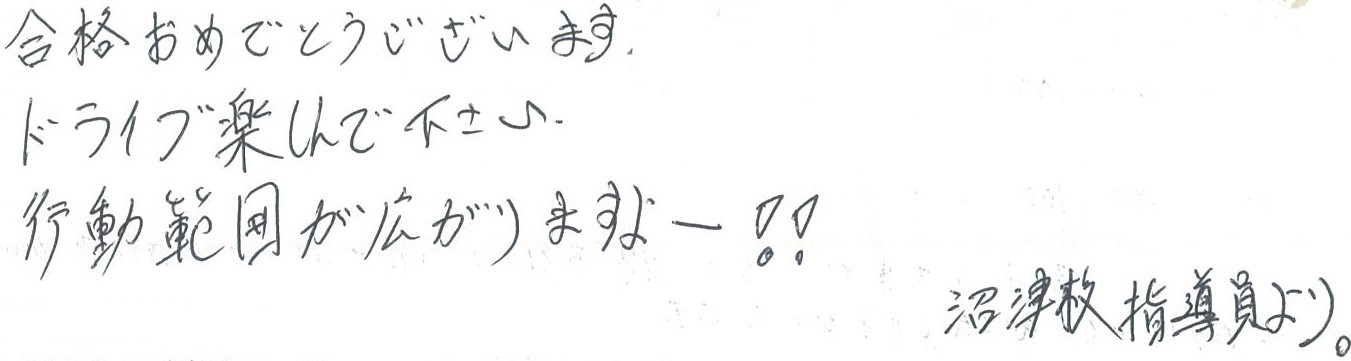 合格おめでとうございます.
ドライブ楽しんで下さい.
行動範囲が広がりますよー!!
沼津校指導員より。